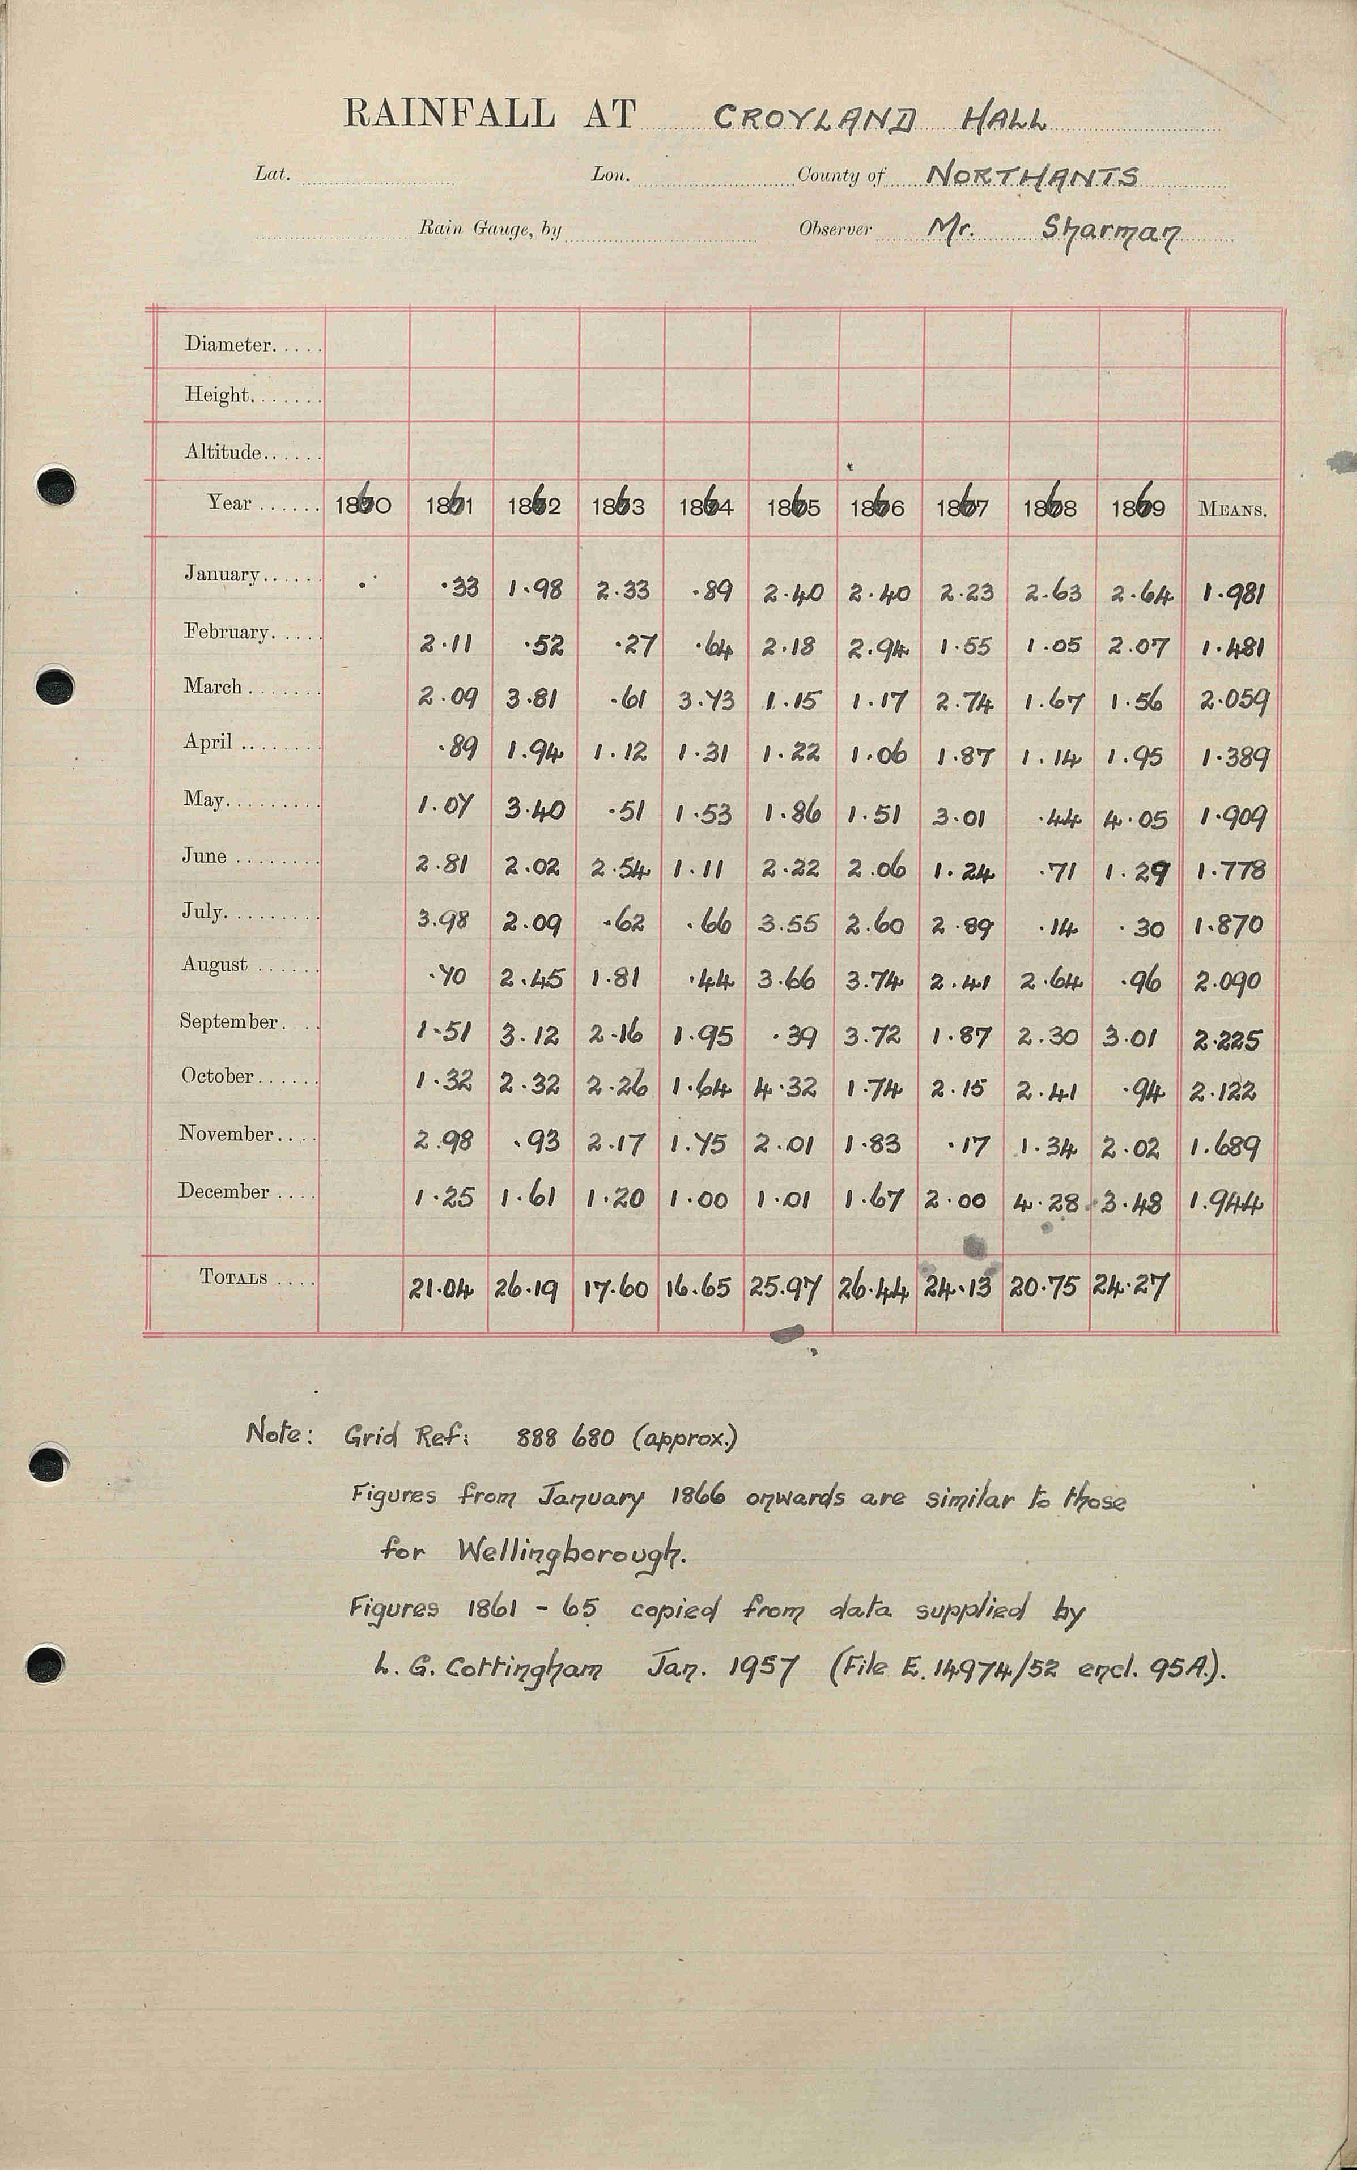 RAINFALL AT CROYLAND HALL
Lat. Lon. County of NORTHANTS
Rain Gauge, by Observer Mr. Sharman
Diameter
Height
Altitude
Year 1860 1861 1862 1863 1864 1865 1866 1867 1868 1869 MEANS.
January .33 1.98 2.33 .89 2.40 2.40 2.23 2.63 2.64 1.981
February 2.11 .52 .27 .64 2.18 2.94 1.55 1.05 2.07 1.481
March 2.09 3.81 .61 3.73 1.15 1.17 2.74 1.67 1.56 2.059
April .89 1.94 1.12 1.31 1.22 1.06 1.87 1.14 1.95 1.389
May 1.07 3.40 .51 1.53 1.86 1.51 3.01 .44 4.05 1.909
June 2.81 2.02 2.54 1.11 2.22 2.06 1.24 .71 1.29 1.778
July 3.98 2.09 .62 .66 3.55 2.60 2.89 .14 .30 1.870
August .70 2.45 1.81 .44 3.66 3.74 2.41 2.64 .96 2.090
September 1.51 3.12 2.16 1.95 .39 3.72 1.87 2.30 3.01 2.225
October 1.32 2.32 2.26 1.64 4.32 1.74 2.15 2.41 .94 2.122
November 2.98 .93 2.17 1.75 2.01 1.83 .17 1.34 2.02 1.689
December 1.25 1.61 1.20 1.00 1.01 1.67 2.00 4.28 3.48 1.944
TOTALS 21.04 26.19 17.60 16.65 25.97 26.44 24.13 20.75 24.27
Note: Grid Ref: 888 680 (approx.)
Figures from January 1866 onwards are similar to those
for Wellingborough.
Figures 1861 - 65 copied from data supplied by
L. G. Cottingham Jan. 1957 (File E. 14974/52 encl. 95A.).